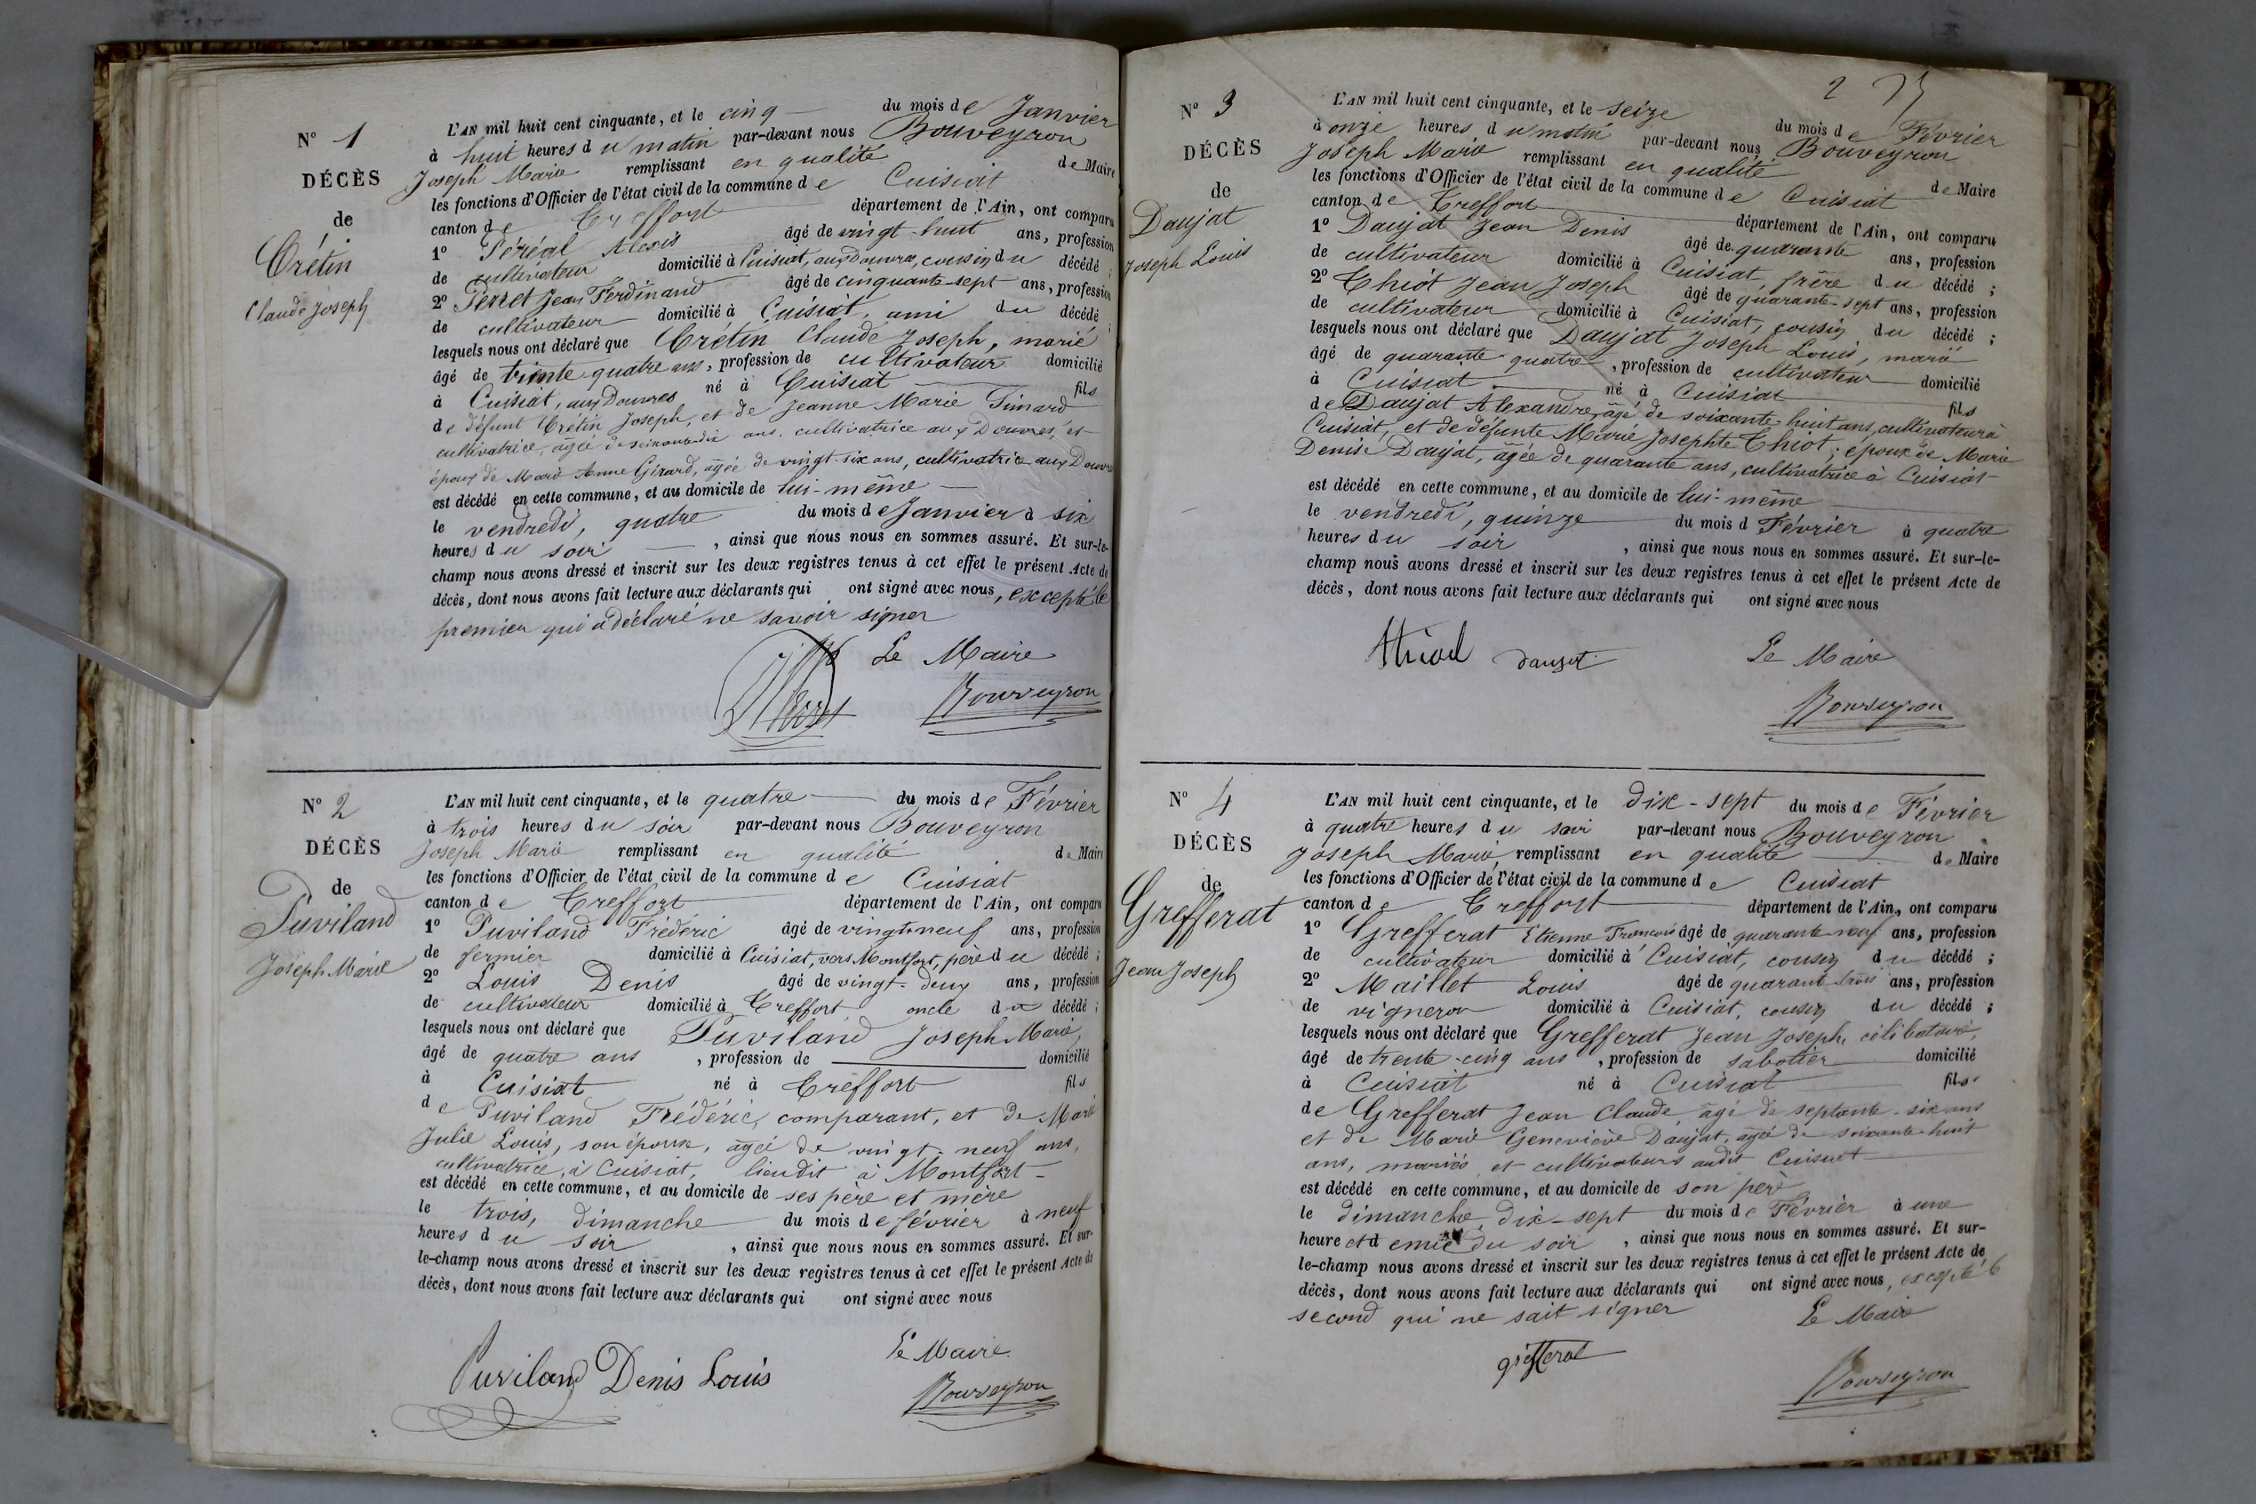 N° 1
DÉCÈS
de
Crétin
Claude Joseph
L'AN mil huit cent cinquante, et le cinq du mois de Janvier
à huit heures du matin par-devant nous Bouveyron
Joseph Marie remplissant en qualité de Maire
les fonctions d'Officier de l'état civil de la commune de Cuisiat
canton de Treffort département de l'Ain, ont comparu
1° Péréal Alexis âgé de vingt-huit ans, profession
de cultivateur domicilié à Cuisiat, aux Douvres, cousin du décédé ;
2° Perret Jean Ferdinand âgé de cinquante-sept ans, profession
de cultivateur domicilié à Cuisiat, ami du décédé ;
lesquels nous ont déclaré que Crétin Claude Joseph, marié
âgé de trente-quatre ans, profession de cultivateur domicilié
à Cuisiat, aux Douvres né à Cuisiat fils
de défunt Crétin Joseph, et de Jeanne Marie
cultivatrice, âgée de ans, cultivatrice aux Douvres, et
époux de Marie Anne Girard, âgée de vingt-six ans, cultivatrice aux Douvres
est décédé en cette commune, et au domicile de lui-même
le vendredi, quatre du mois de Janvier à six
heures du soir , ainsi que nous nous en sommes assuré. Et sur-le-
champ nous avons dressé et inscrit sur les deux registres tenus à cet effet le présent Acte de
décès, dont nous avons fait lecture aux déclarants qui ont signé avec nous, excepté le
premier qui a déclaré ne savoir signer
Le Maire
Perret Bouveyron
N° 2
DÉCÈS
de
Puviland
Joseph Marie
L'AN mil huit cent cinquante, et le quatre du mois de Février
à trois heures du soir par-devant nous Bouveyron
Joseph Marie remplissant en qualité de Maire
les fonctions d'Officier de l'état civil de la commune de Cuisiat
canton de Treffort département de l'Ain, ont comparu
1° Puviland Frédéric âgé de vingt-neuf ans, profession
de fermier domicilié à Cuisiat, vers Montfort, père du décédé ;
2° Louis Denis âgé de vingt-deux ans, profession
de cultivateur domicilié à Treffort oncle du décédé ;
lesquels nous ont déclaré que Puviland Joseph Marie,
âgé de quatre ans , profession de domicilié
à Cuisiat né à Treffort fils
de Puviland Frédéric, comparant, et de Marie
Julie Louis, son épouse, âgée de vingt-neuf ans,
cultivatrice, à Cuisiat, lieu dit à Montfort
est décédé en cette commune, et au domicile de ses père et mère
le trois, dimanche du mois de février à neuf
heures du soir , ainsi que nous nous en sommes assuré. Et sur-
le-champ nous avons dressé et inscrit sur les deux registres tenus à cet effet le présent Acte de
décès, dont nous avons fait lecture aux déclarants qui ont signé avec nous
Le Maire
Puviland Denis Louis Bouveyron
2
N° 3
DÉCÈS
de
Daujat
Joseph Louis
L'AN mil huit cent cinquante, et le seize du mois de Février
à onze heures du matin par-devant nous Bouveyron
Joseph Marie remplissant en qualité de Maire
les fonctions d'Officier de l'état civil de la commune de Cuisiat
canton de Treffort département de l'Ain, ont comparu
1° Daujat Jean Denis âgé de quarante ans, profession
de cultivateur domicilié à Cuisiat, frère du décédé ;
2° Thiot Jean Joseph âgé de quarante-sept ans, profession
de cultivateur domicilié à Cuisiat, cousin du décédé ;
lesquels nous ont déclaré que Daujat Joseph Louis, marié
âgé de quarante quatre , profession de cultivateur domicilié
à Cuisiat né à Cuisiat fils
de Daujat Alexandre, âgé de soixante-huit ans, cultivateur à
Cuisiat, et de défunte Marie Josephte Thiot ; époux de Marie
Denise Daujat, âgée de quarante ans, cultivatrice à Cuisiat
est décédé en cette commune, et au domicile de lui-même
le vendredi, quinze du mois d Février à quatre
heures du soir , ainsi que nous nous en sommes assuré. Et sur-le-
champ nous avons dressé et inscrit sur les deux registres tenus à cet effet le présent Acte de
décès, dont nous avons fait lecture aux déclarants qui ont signé avec nous
Thiot daujat Le Maire
Bouveyron
N° 4
DÉCÈS
de
Grefferat
Jean Joseph
L'AN mil huit cent cinquante, et le dix-sept du mois de Février
à quatre heures du soir par-devant nous Bouveyron
Joseph Marie, remplissant en qualité de Maire
les fonctions d'Officier de l'état civil de la commune de Cuisiat
canton de Treffort département de l'Ain, ont comparu
1° Grefferat Etienne François âgé de quarante-neuf ans, profession
de cultivateur domicilié à Cuisiat, cousin du décédé ;
2° Maillet Louis âgé de quarante-trois ans, profession
de vigneron domicilié à Cuisiat, cousin du décédé ;
lesquels nous ont déclaré que Grefferat Jean Joseph, célibataire,
âgé de trente-cinq ans , profession de sabotier domicilié
à Cuisiat né à Cuisiat fils
de Grefferat Jean Claude âgé de septante-six ans
et de Marie Geneviève Daujat, âgée de soixante-huit
ans, mariés et cultivateurs audit Cuisiat
est décédé en cette commune, et au domicile de son père
le dimanche dix-sept du mois de Février à une
heure et demie du soir , ainsi que nous nous en sommes assuré. Et sur-
le-champ nous avons dressé et inscrit sur les deux registres tenus à cet effet le présent Acte de
décès, dont nous avons fait lecture aux déclarants qui ont signé avec nous, excepté le
second qui ne sait signer Le Maire
grefferat
Bouveyron